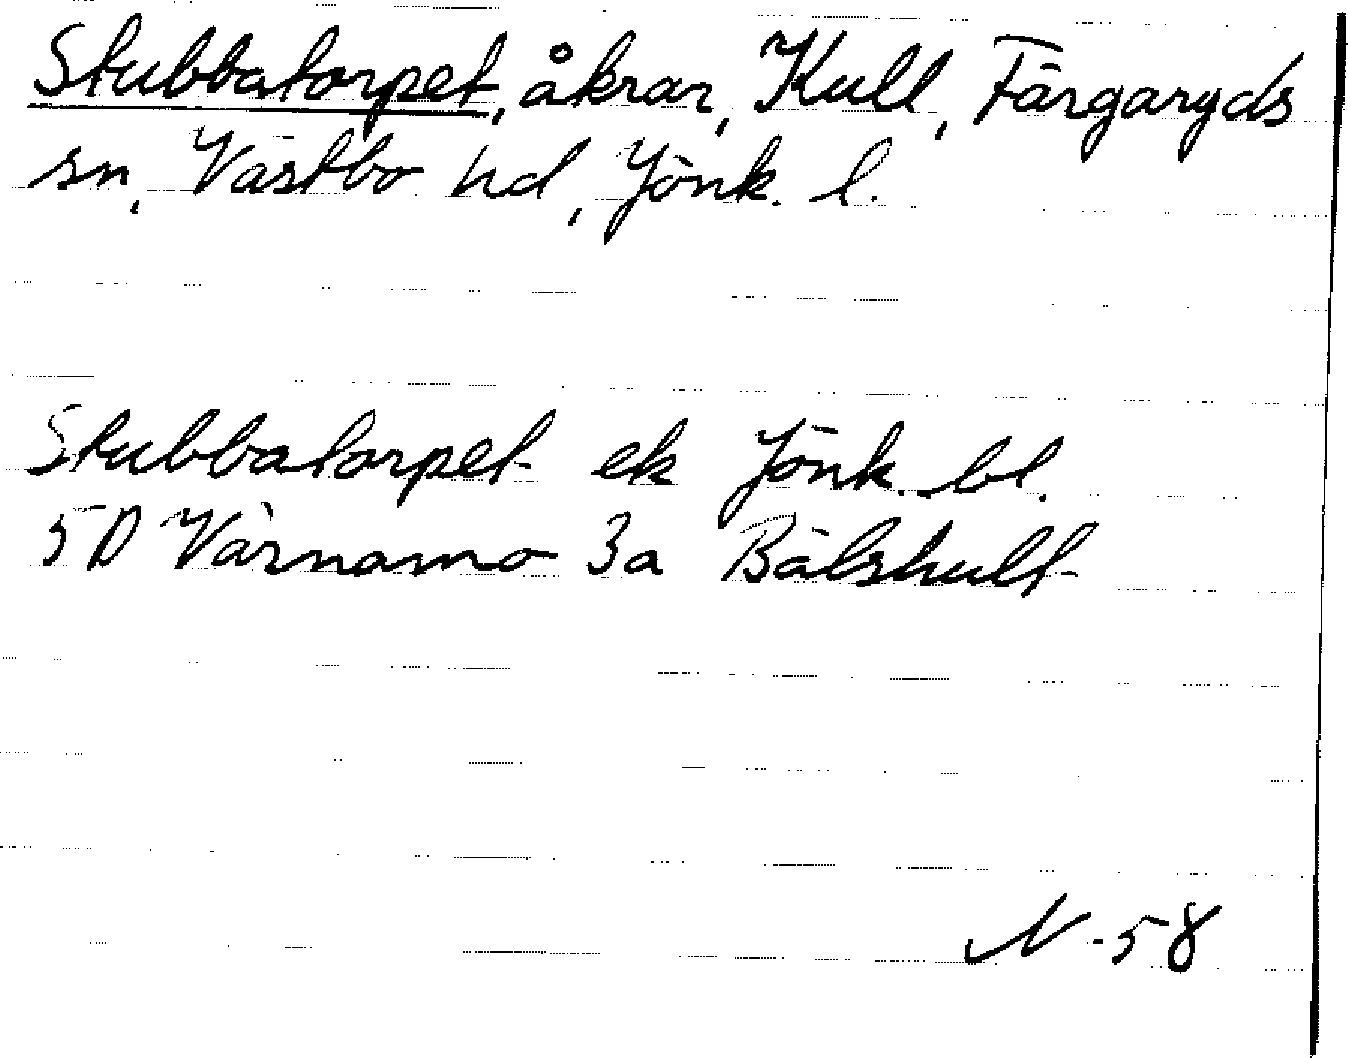 Stubbatorpet, åkrar, Kull, Färgaryds
sn, Västbo hd, Jönk. l.
Stubbatorpet ek Jönk. bl.
5D Värnamo 3a Bälshult
N -58